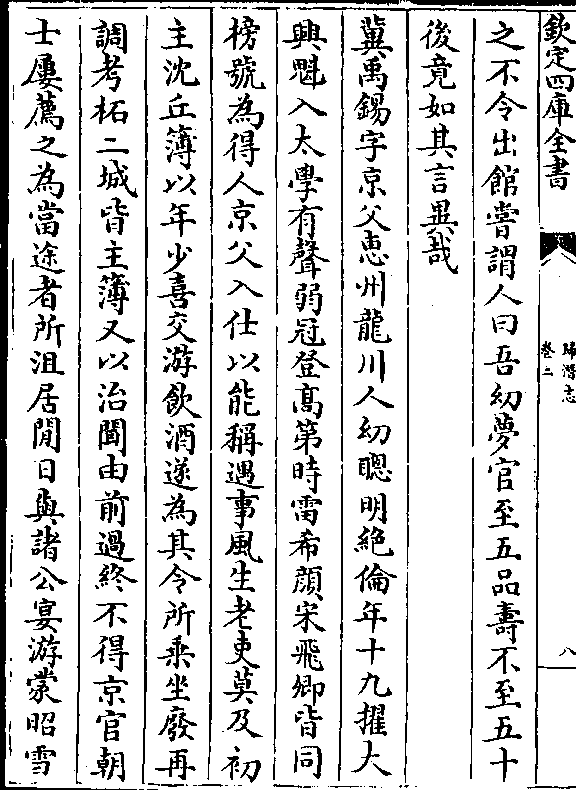 欽定四庫全書
歸潛志
卷二
八
之不令出館嘗謂人曰吾幼夢官至五品壽不至五十
後竟如其言異哉
冀禹錫字京父惠州龍川人幼聰明絶倫年十九擢大
興魁入太學有聲弱冠登髙第時雷希顔宋飛卿皆同
榜號為得人京父入仕以能稱遇事風生老吏莫及初
主沈丘簿以年少喜交游飲酒遂為其令所乗坐廢再
調考柘二城皆主簿又以治聞由前過終不得京官朝
士屢薦之為當途者所沮居閒日與諸公宴游蒙昭雪